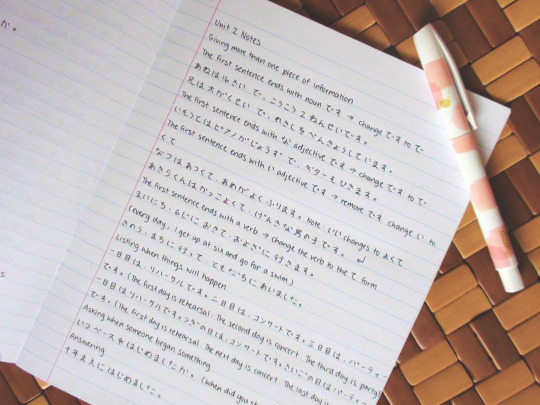 か。
Unit 2 Notes
Giving more than one piece of information
The first sentence ends with noun です → change です to で.
あねは16さいで、こうこう2ねんせいです。
兄は大がくせいで、れきしをべんきょうしています。
The first sentence ends with な adjective です → change です to で
いもうとはピアノがじょうずで、ギターもひきます。
The first sentence ends with い adjective です → remove です, change い to
くて
なつはあつくて、あめがよくふります。Note: いい changes to よくて
あきらくんはかっこよくて、げんきな男の子です。
The first sentence ends with a verb → change the verb to the て form
まいにち、6じにおきて、およぎに行きます。
(every day, I get up at six and go for a swim)
きのう、まちに行って、ともだちにあいました。
Listing when things will happen
一日目は、リハーサルです。二日目は、コンサートです。三日目は、パーティー
です。(The first day is rehearsal. The second day is concert. The third day is party
一日目はリハーサルです。つぎの日は、コンサートです。さいごの日は、パーティー
です。(The first day is rehearsal. The next day is concert. The last day is
Asking when someone began something
いつベースをはじめましたか。(when did you st
Answering
十年まえにはじめました。
s